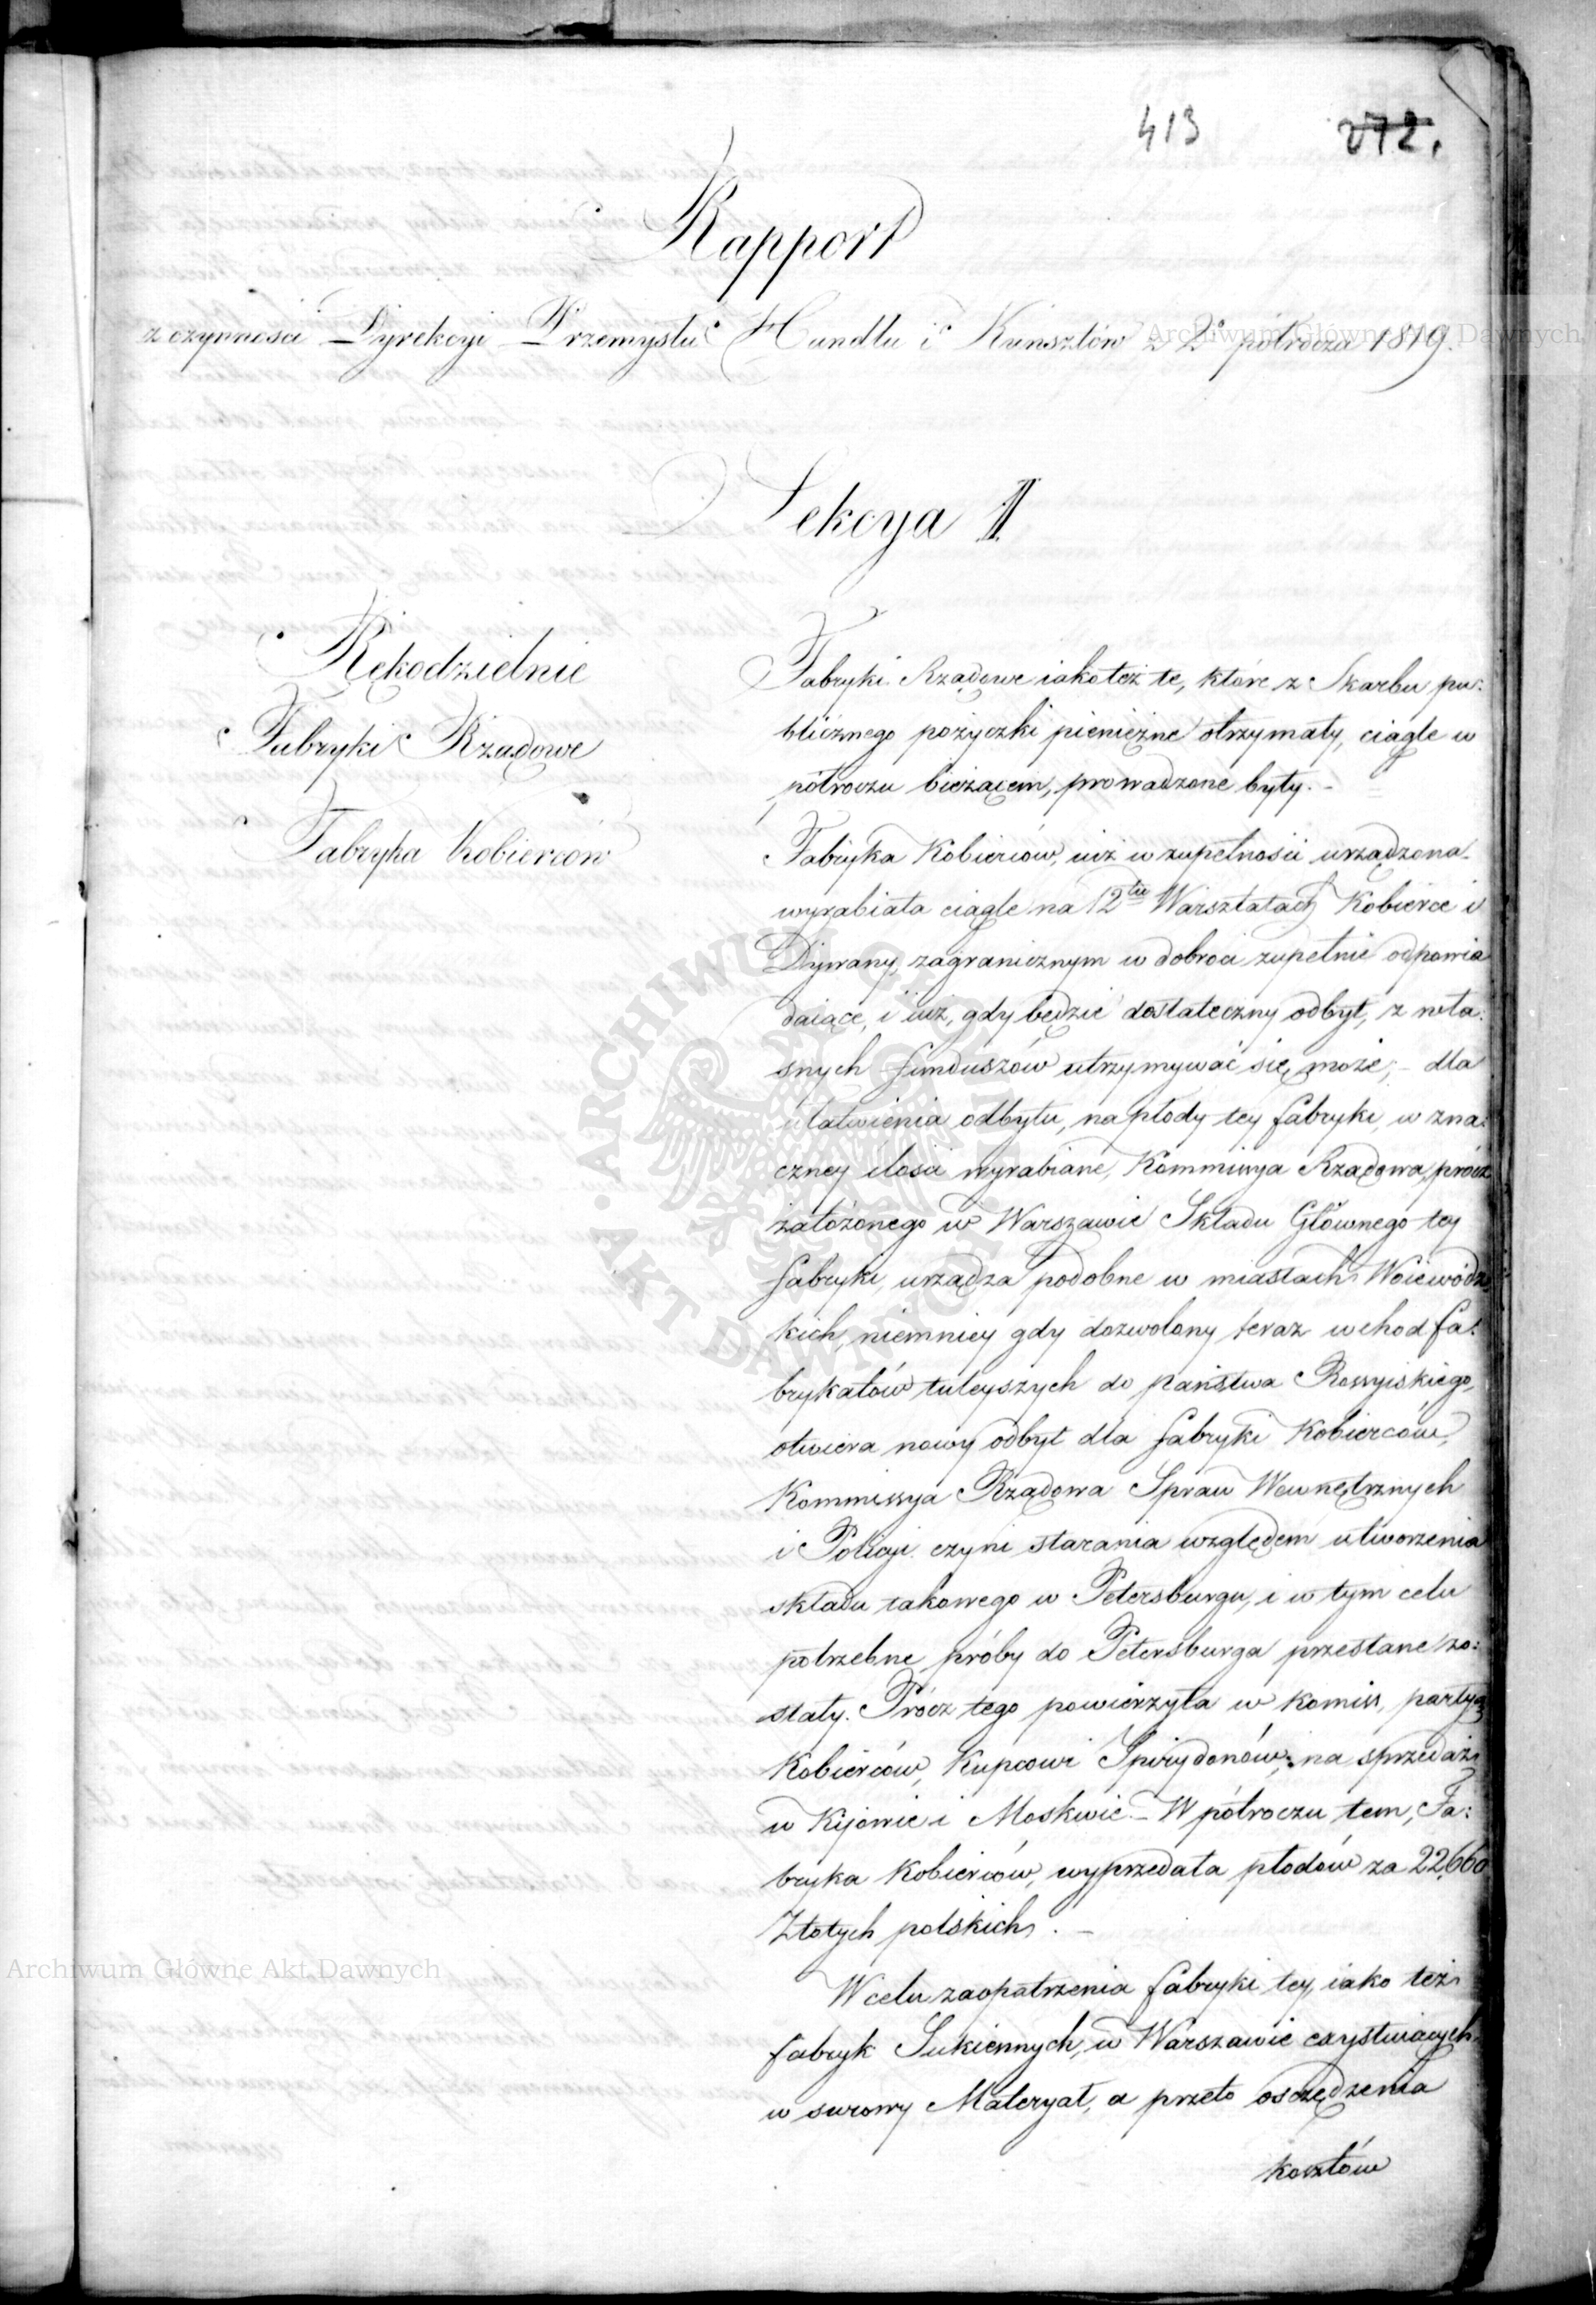 413 272.
Rapport
z czynności Dyrekcyi Przemysłu Handlu i Kunsztów z 2o półrocza 1819.
Sekcya II
Rękodzielnie
Fabryki Rządowe
Fabryki Rządowe iakoteż te, które z Skarbu pu:
blicznego pożyczki pieniężne otrzymały, ciągle w
półroczu bieżącem, prowadzone były. –
Fabryka Kobierców
Fabryka Kobierców, iuż w zupełności urządzona
wyrabiała ciągle na 12tu Warsztatach Kobierce i
Dywany, zagranicznym w dobroci zupełnie odpowia
daiące, i iuż, gdy będzie dostateczny odbyt, z wła:
snych funduszów utrzymywać się może; – dla
ułatwienia odbytu, na płody tey fabryki, w zna:
czney ilości wyrabiane, Kommissya Rządowa, prócz
założonego w Warszawie Składu Głównego tey
fabryki, urządza podobne w miastach Woiewódz
kich, niemniey gdy dozwolony teraz wchod fa:
brykatów tuteyszych do państwa Rossyiskiego,
otwiera nowy odbyt dla fabryki Kobierców,
Kommissya Rządowa Spraw Wewnętrznych
i Policyi czyni starania względem utworzenia
składu takowego w Petersburgu, i w tym celu
potrzebne próby do Petersburga przesłane zo:
stały. Prócz tego powierzyła w komiss, partyą
Kobierców, Kupcowi Spirydonów, na sprzedaż
w Kijowie i Moskwie. – W półroczu tem, Fa:
bryka Kobierców, wyprzedała płodów za 22,660
Złotych polskich. –
W celu zaopatrzenia fabryki tey, iako też
fabryk Sukiennych, w Warszawie exystuiących
w surowy Materyał, a przeto oszczędzenia
kosztów
Archiwum Główne Akt Dawnych
Archiwum Główne Akt Dawnych
ARCHIWUM GŁÓWNE · AKT DAWNYCH ·